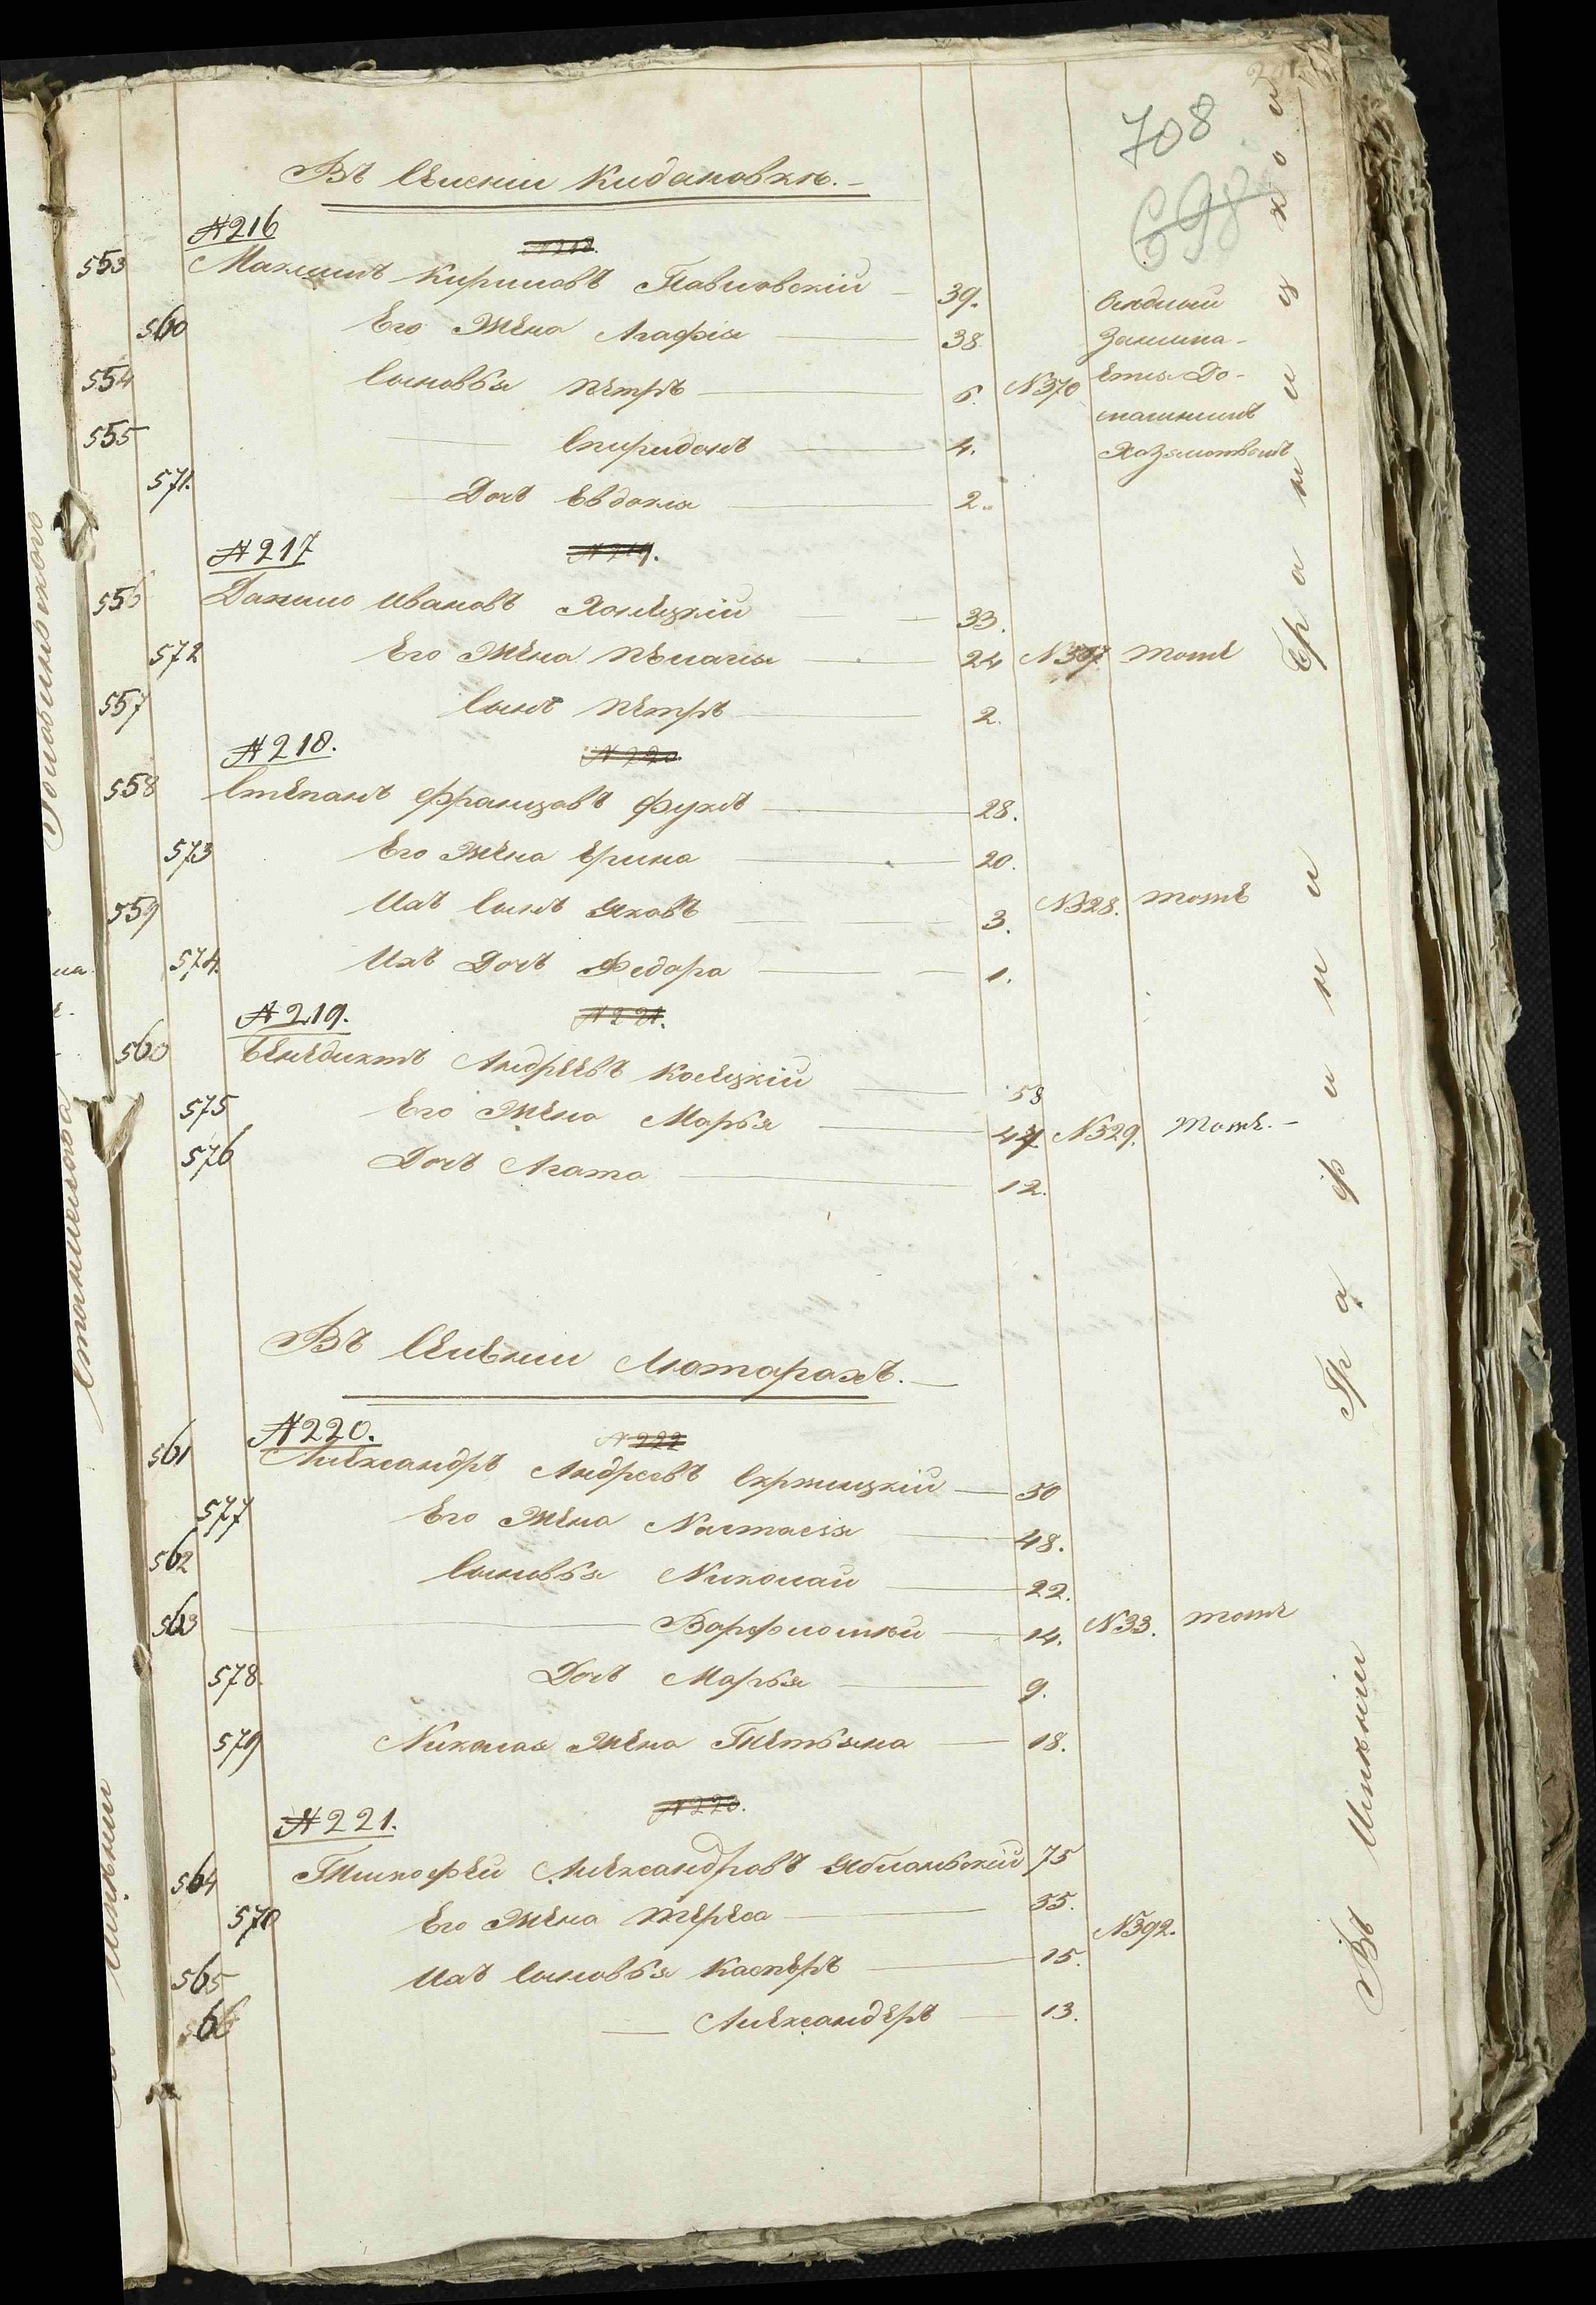 708
698
Въ Селении Кидановке.
№ 216
553 Максимъ Кириловъ Павловскій 39.
560 Его Жена Агафія 38
554 Сыновья Петръ 6. №370
555 Спиридонъ 4.
571. Дочъ Евдокия 2.
Оседлый
Занима-
етца До-
машнимъ
Хазяиствомъ
№ 217
556 Данило Ивановъ Хонецкій 33.
572 Его Жена Пелагия 24 тоже
557 Сынъ Петръ 2.
№ 218.
№ 220
558 Степанъ Францовъ Фукъ 28.
573 Его Жена Ерина 20.
559 Ихъ Сынъ Яковъ 3. №328. тоже
574. Ихъ Дочъ Федора 1.
№ 219.
№ 221.
560 Бенедиктъ Андреевъ Косецкій 58
575 Его Жена Марья 44. №329. тоже.
576 Дочъ Агата 12.
Въ Селении Лютарахъ.
№ 220.
№ 222
561 Александръ Андреевъ Скржицкій 50
577 Его Жена Настасия 48.
562 Сыновья Николай 22.
563 Варфломей 14. №33. тоже
578. Дочъ Марья 9.
579 Николая Жена Тетьяна 18.
№ 221.
№ 223.
564 Тимофей Александровъ Яблоньский 75
570 Его Жена Тереса 55.
565 Ихъ Сыновья Касперъ 15. №392.
566 Александеръ 13.
Въ Имении Графини